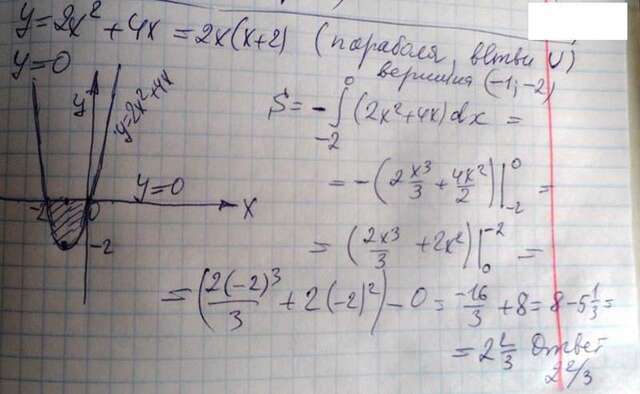 y=2x²+4x=2x(x+2) (парабола, ветви U)
y=0
вершина (-1,-2)
y
y=2x²+4x
S=-∫₋₂⁰(2x²+4x)dx=
=-(2x³/3+4x²/2)|₋₂⁰=
y=0
-2 0 x
-2
=(2x³/3+2x²)|₀⁻²=
=(2(-2)³/3+2(-2)²)-0=-16/3+8=8-5 1/3=
=2 2/3 Ответ
2 2/3